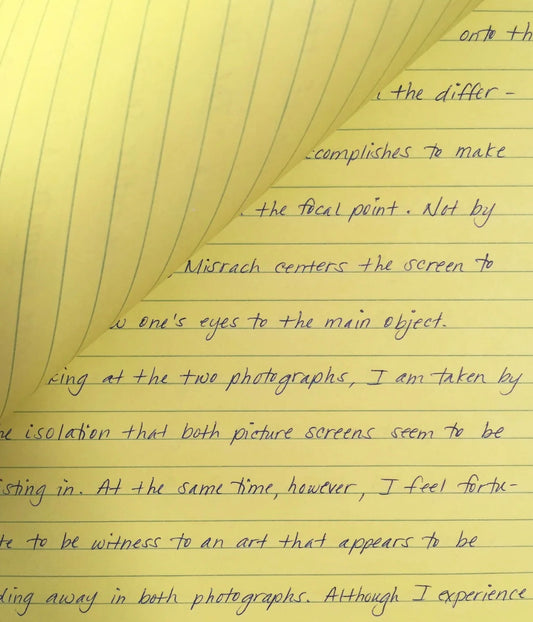 onto th
the differ-
complishes to make
the focal point. Not by
Misrach centers the screen to
w one's eyes to the main object.
king at the two photographs, I am taken by
isolation that both picture screens seem to be
isting in. At the same time, however, I feel fortu-
te to be witness to an art that appears to be
ding away in both photographs. Although I experience